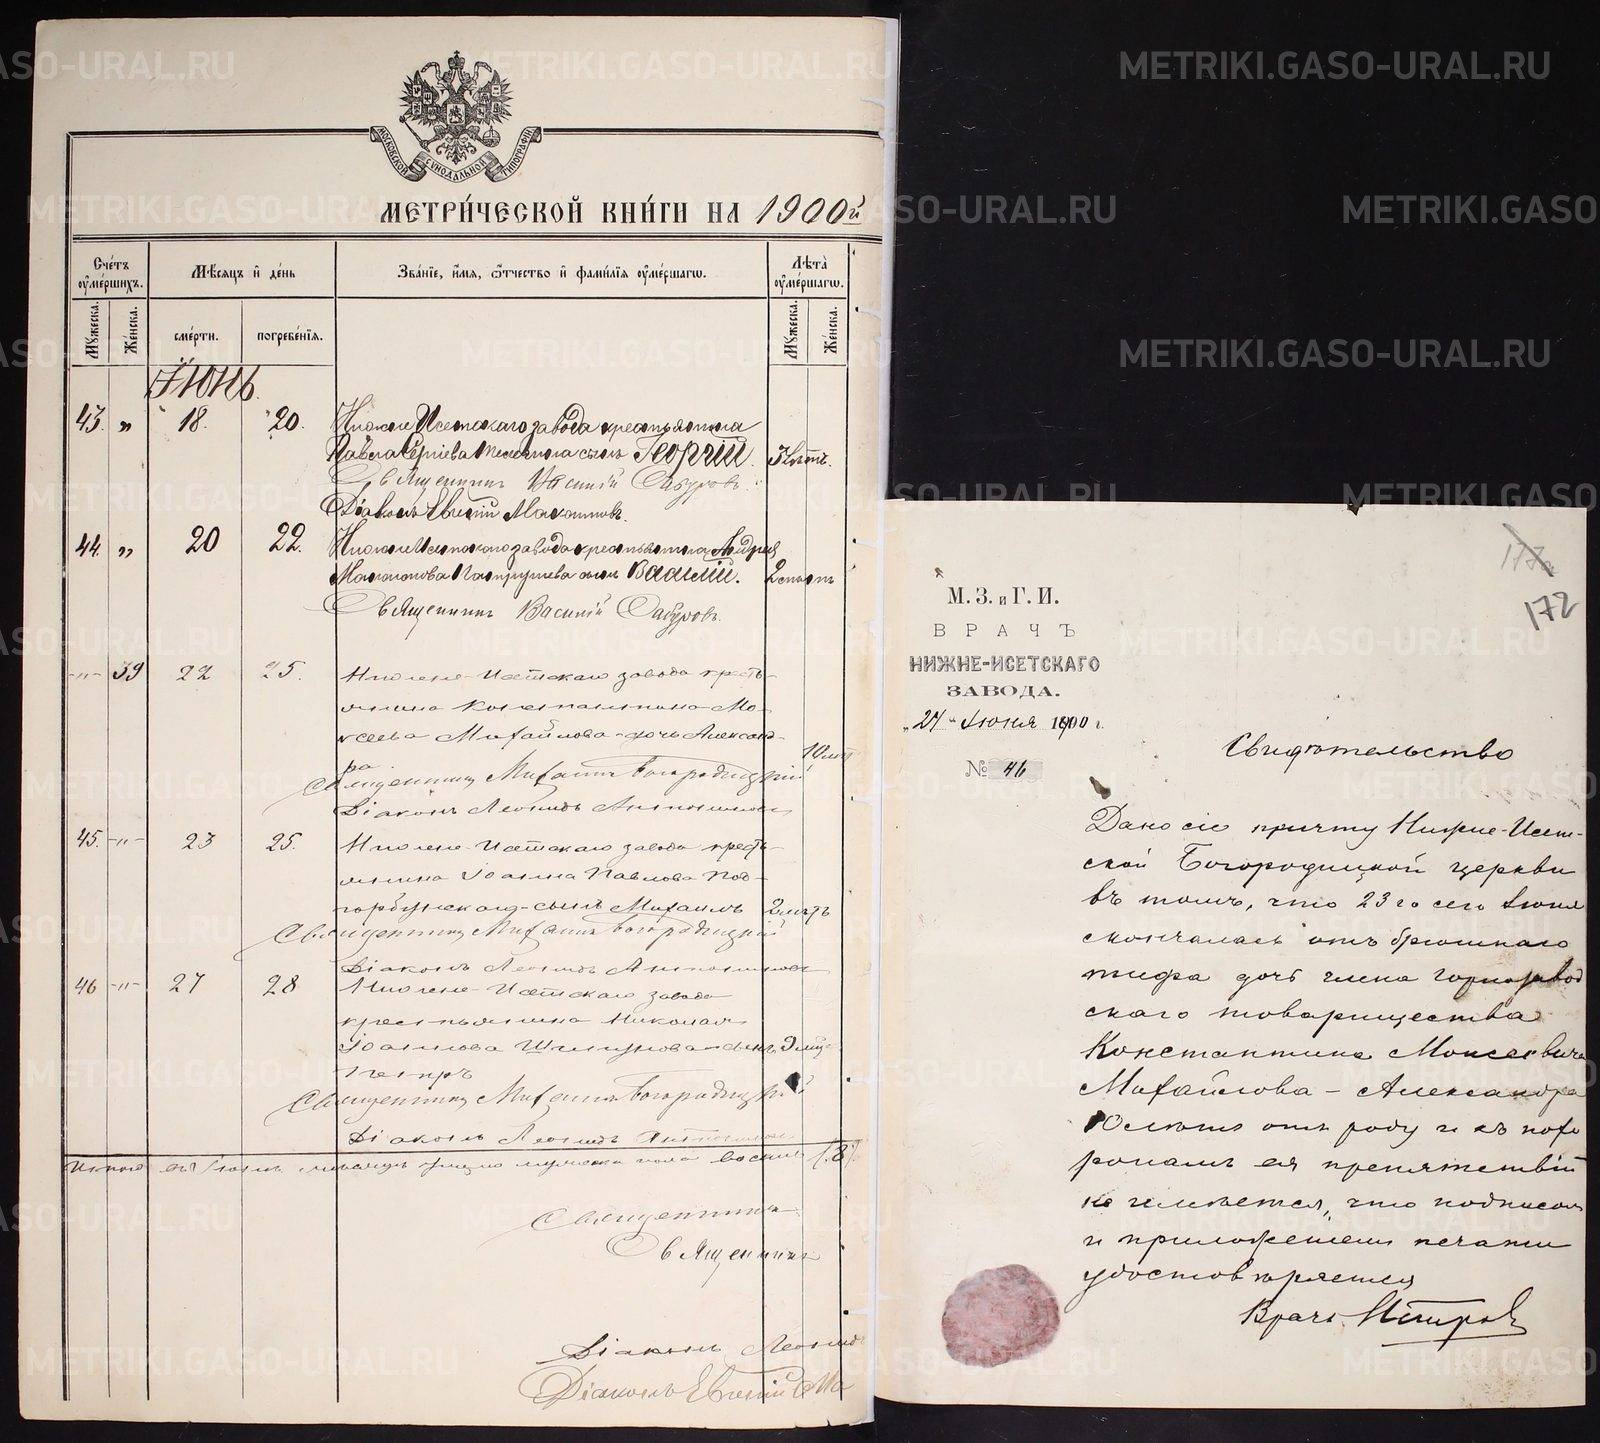 МОСКОВСКОЙ СѴНОДАЛЬНОЙ ТИПОГРАФІИ
МЕТРИ́ЧЕСКОЙ КНИ́ГИ НА 1900й
Сче́тъ ᲂу҆ме́ршихъ.
Мѣ́сяцъ и де́нь
Зва́нїе, и҆́мѧ, ѻ҆́тчество и҆ фами́лїѧ ᲂу҆ме́ршагѡ.
Лѣта̀ ᲂу҆ме́ршагѡ.
Мꙋ́жеска. Же́нска. сме́рти. погребе́нїѧ. Мꙋ́жеска. Же́нска.
Іюнь.
43. „ 18. 20. Нижне Исетскаго завода крестьянина
Павла Сергіева сынъ Георгій. 3 лѣтъ.
Священникъ Василій Сабуровъ.
Діаконъ Евгеній
44. „ 20 22. Нижне Исетскаго завода крестьянина Андрея
сынъ Василій. 2
Священникъ Василій Сабуровъ.
-„- 39 22 25. Нижне-Исетскаго завода кресть-
янина Константина Мо-
исеева Михайлова-дочь Александ-
ра. 10 лѣт
Священникъ Михаилъ Богородицкій
Діаконъ Леонидъ
45. -„- 23 25. Нижне-Исетскаго завода кресть-
янина Іоанна Павлова Под-
сынъ Михаилъ 2 лѣтъ
Священникъ Михаилъ Богородицкій
Діаконъ Леонидъ
46 -„- 27 28 Нижне-Исетскаго завода
крестьянина Николая
Іоаннова сынъ 9 мѣс.
Петръ
Священникъ Михаилъ Богородицкій
Діаконъ Леонидъ
Итого въ Іюнѣ мѣсяцѣ мужеска пола восемь (8)
Священникъ
Священникъ
Діаконъ Леонидъ
Діаконъ Евгеній Ма
172
М. З. и Г. И.
ВРАЧЪ
НИЖНЕ-ИСЕТСКАГО
ЗАВОДА.
„24“ Іюня 1900 г.
№ 46
Свидѣтельство
Дано сіе причту Нижне-Исет-
ской Богородицкой церкви
въ томъ, что 23го сего Іюня
скончалась отъ брюшнаго
тифа дочь члена горнозавод
скаго товарищества
Константина Моисеевича
Михайлова - Александра
10 лѣтъ отъ роду и къ похо
ронамъ ея препятствій
не имѣется, что подписом
и приложеніемъ печати
удостовѣряется
Врачъ
METRIKI.GASO-URAL.RU